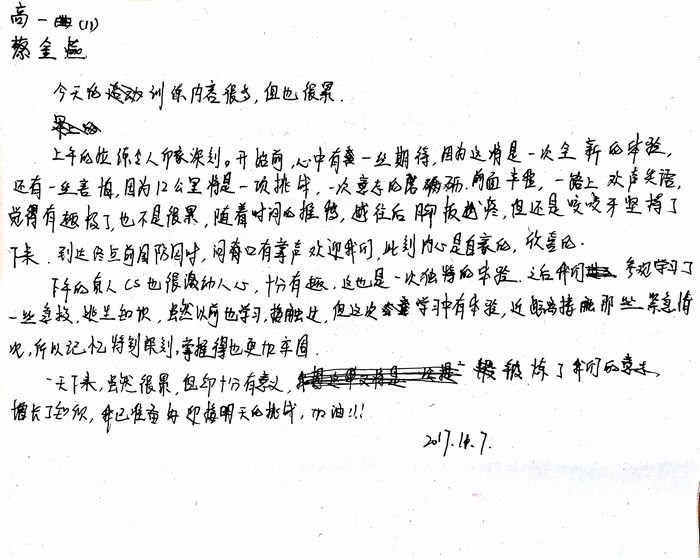 高一 (11)
蔡金燕
今天的活动训练内容很多,但也很累.
上午的拉练令人印象深刻。开始前,心中有一丝期待,因为这将是一次全新的体验,
还有一丝害怕,因为12公里将是一项挑战,一次意志的磨砺.前面半程,一路上欢声笑语,
觉得有趣极了,也不是很累,随着时间的推移,越往后脚板越疼,但还是咬咬牙坚持了
下来.到达终点前国防园时,同有掌声欢迎我们,此刻内心是自豪的,欣喜的.
下午的真人CS也很激动人心,十分有趣.这也是一次独特的体验.之后我们参观学习了
一些急救,逃生知识,虽然以前也学习,接触过,但这次学习中有体验,近距离接触那些紧急情
况,所以记忆特别深刻,掌握得也更加牢固.
一天下来,虽然很累,但却十分有意义,锻炼了我们的意志,
增长了知识,我已准备好迎接明天的挑战,加油!!!
2017.10.7.